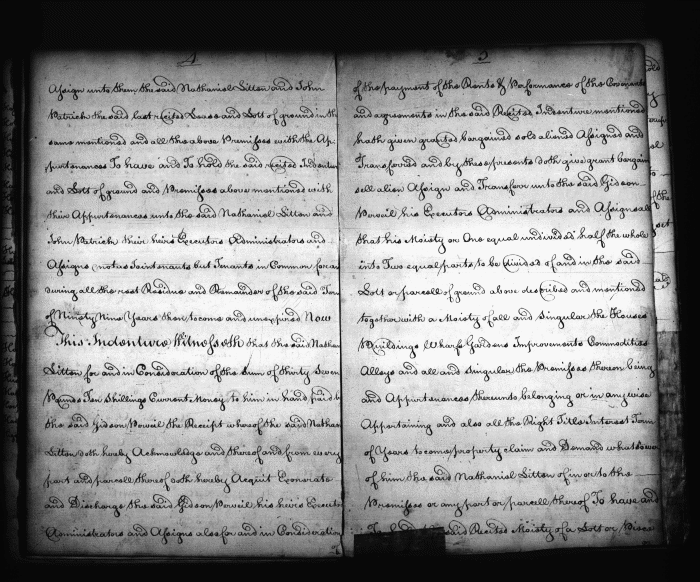 4
Assign unto them the said Nathaniel Litton and John
Patrick the said last recited Lease and Lott of ground in the
same mentioned and all the above Premisses with the Ap-
purtenances To have and To hold the said recited Indenture
and Lott of ground and Premisses above mentioned with
their Appurtenances unto the said Nathaniel Litton and
John Patrick their heirs Executors Administrators and
Assigns not as Jointenants but Tenants in Common for and
during all the rest Residue and Remainder of the said Term
of Ninety Nine Years then to come and unexpired Now
This Indenture Witnesseth that the said Nathan
Litton for and in Consideration of the Sum of thirty Seven
Pounds Ten Shillings Current Money to him in hand paid by
the said Gideon the Receipt whereof the said Nathan
Litton doth hereby Acknowledge and thereof and from every
part and parcell thereof doth hereby Acquit Exonerate
and Discharge the said Gideon his heirs Executors
Administrators and Assigns also for and in Consideration
5
of the payment of the Rents & Performance of the Covenants
and agreements in the said Recited Indenture mentioned
hath given granted bargained sold aliened Assigned and
Transferred and by these presents doth give grant bargain
sell alien Assign and Transferr unto the said Gideon
his Executors Administrators and Assigns all
that his Moiety or One equal undivided half the whole
into Two equal parts to be divided of and in the said
Lott or parcell of ground above described and mentioned
together with a Moiety of all and Singular the Houses
Buildings Wharfs Gardens Improvements Commodities
Alleys and all and singular the Premisses thereon being
and Appurtenances thereunto belonging or in any wise
Appertaining and also all the Right Title Interest Term
of Years to come property claim and Demand whatsoever
of him the said Nathaniel Litton of in or to the
Premisses or any part or parcell thereof To have and
To said Recited Moiety of a Lott or Piece